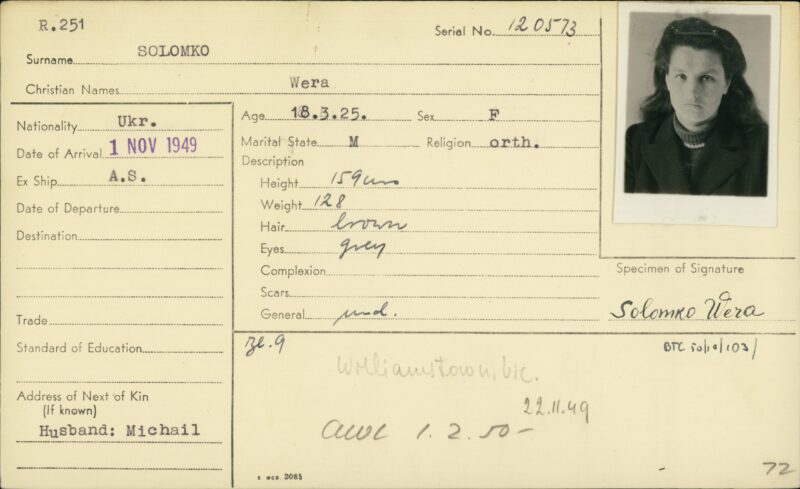 R.251
Serial No. 120573
Surname SOLOMKO
Christian Names Wera
Nationality Ukr.
Date of Arrival 1 NOV 1949
Ex Ship A.S.
Date of Departure
Destination
Trade
Standard of Education
Address of Next of Kin
(If known)
Husband: Michail
Age 18.3.25. Sex F
Marital State M Religion orth.
Description
Height 159cm
Weight 128
Hair brown
Eyes grey
Complexion
Scars
General med.
Specimen of Signature
Solomko Wera
Bl. 9
BTC 50/10/103/
Williamstown, Vic.
22.11.49
AWL 1.2.50-
S. MGB. 2085
72